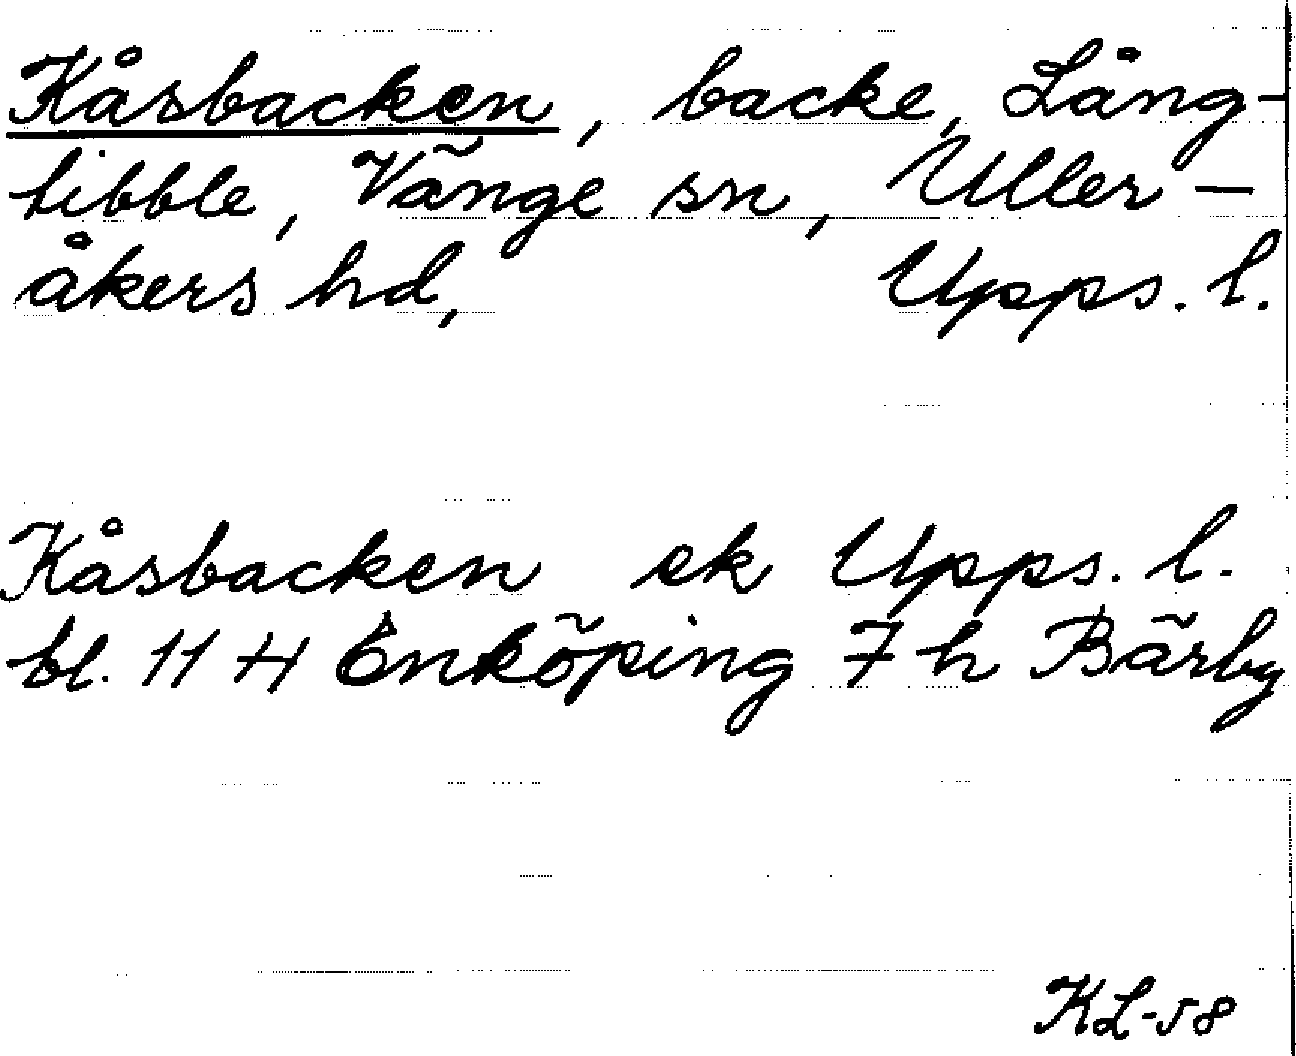 Kåsbacken, backe, Lång-
tibble, Vänge sn, Uller-
åkers hd, Upps. l.
Kåsbacken ek Upps. l.
bl. 11 H Enköping 7 h Bärby
KL-58